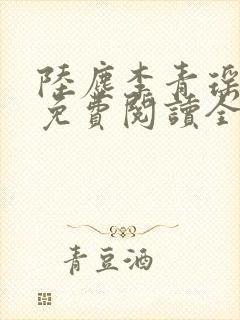 陸塵李青瑤
免費閱讀全
青豆酒